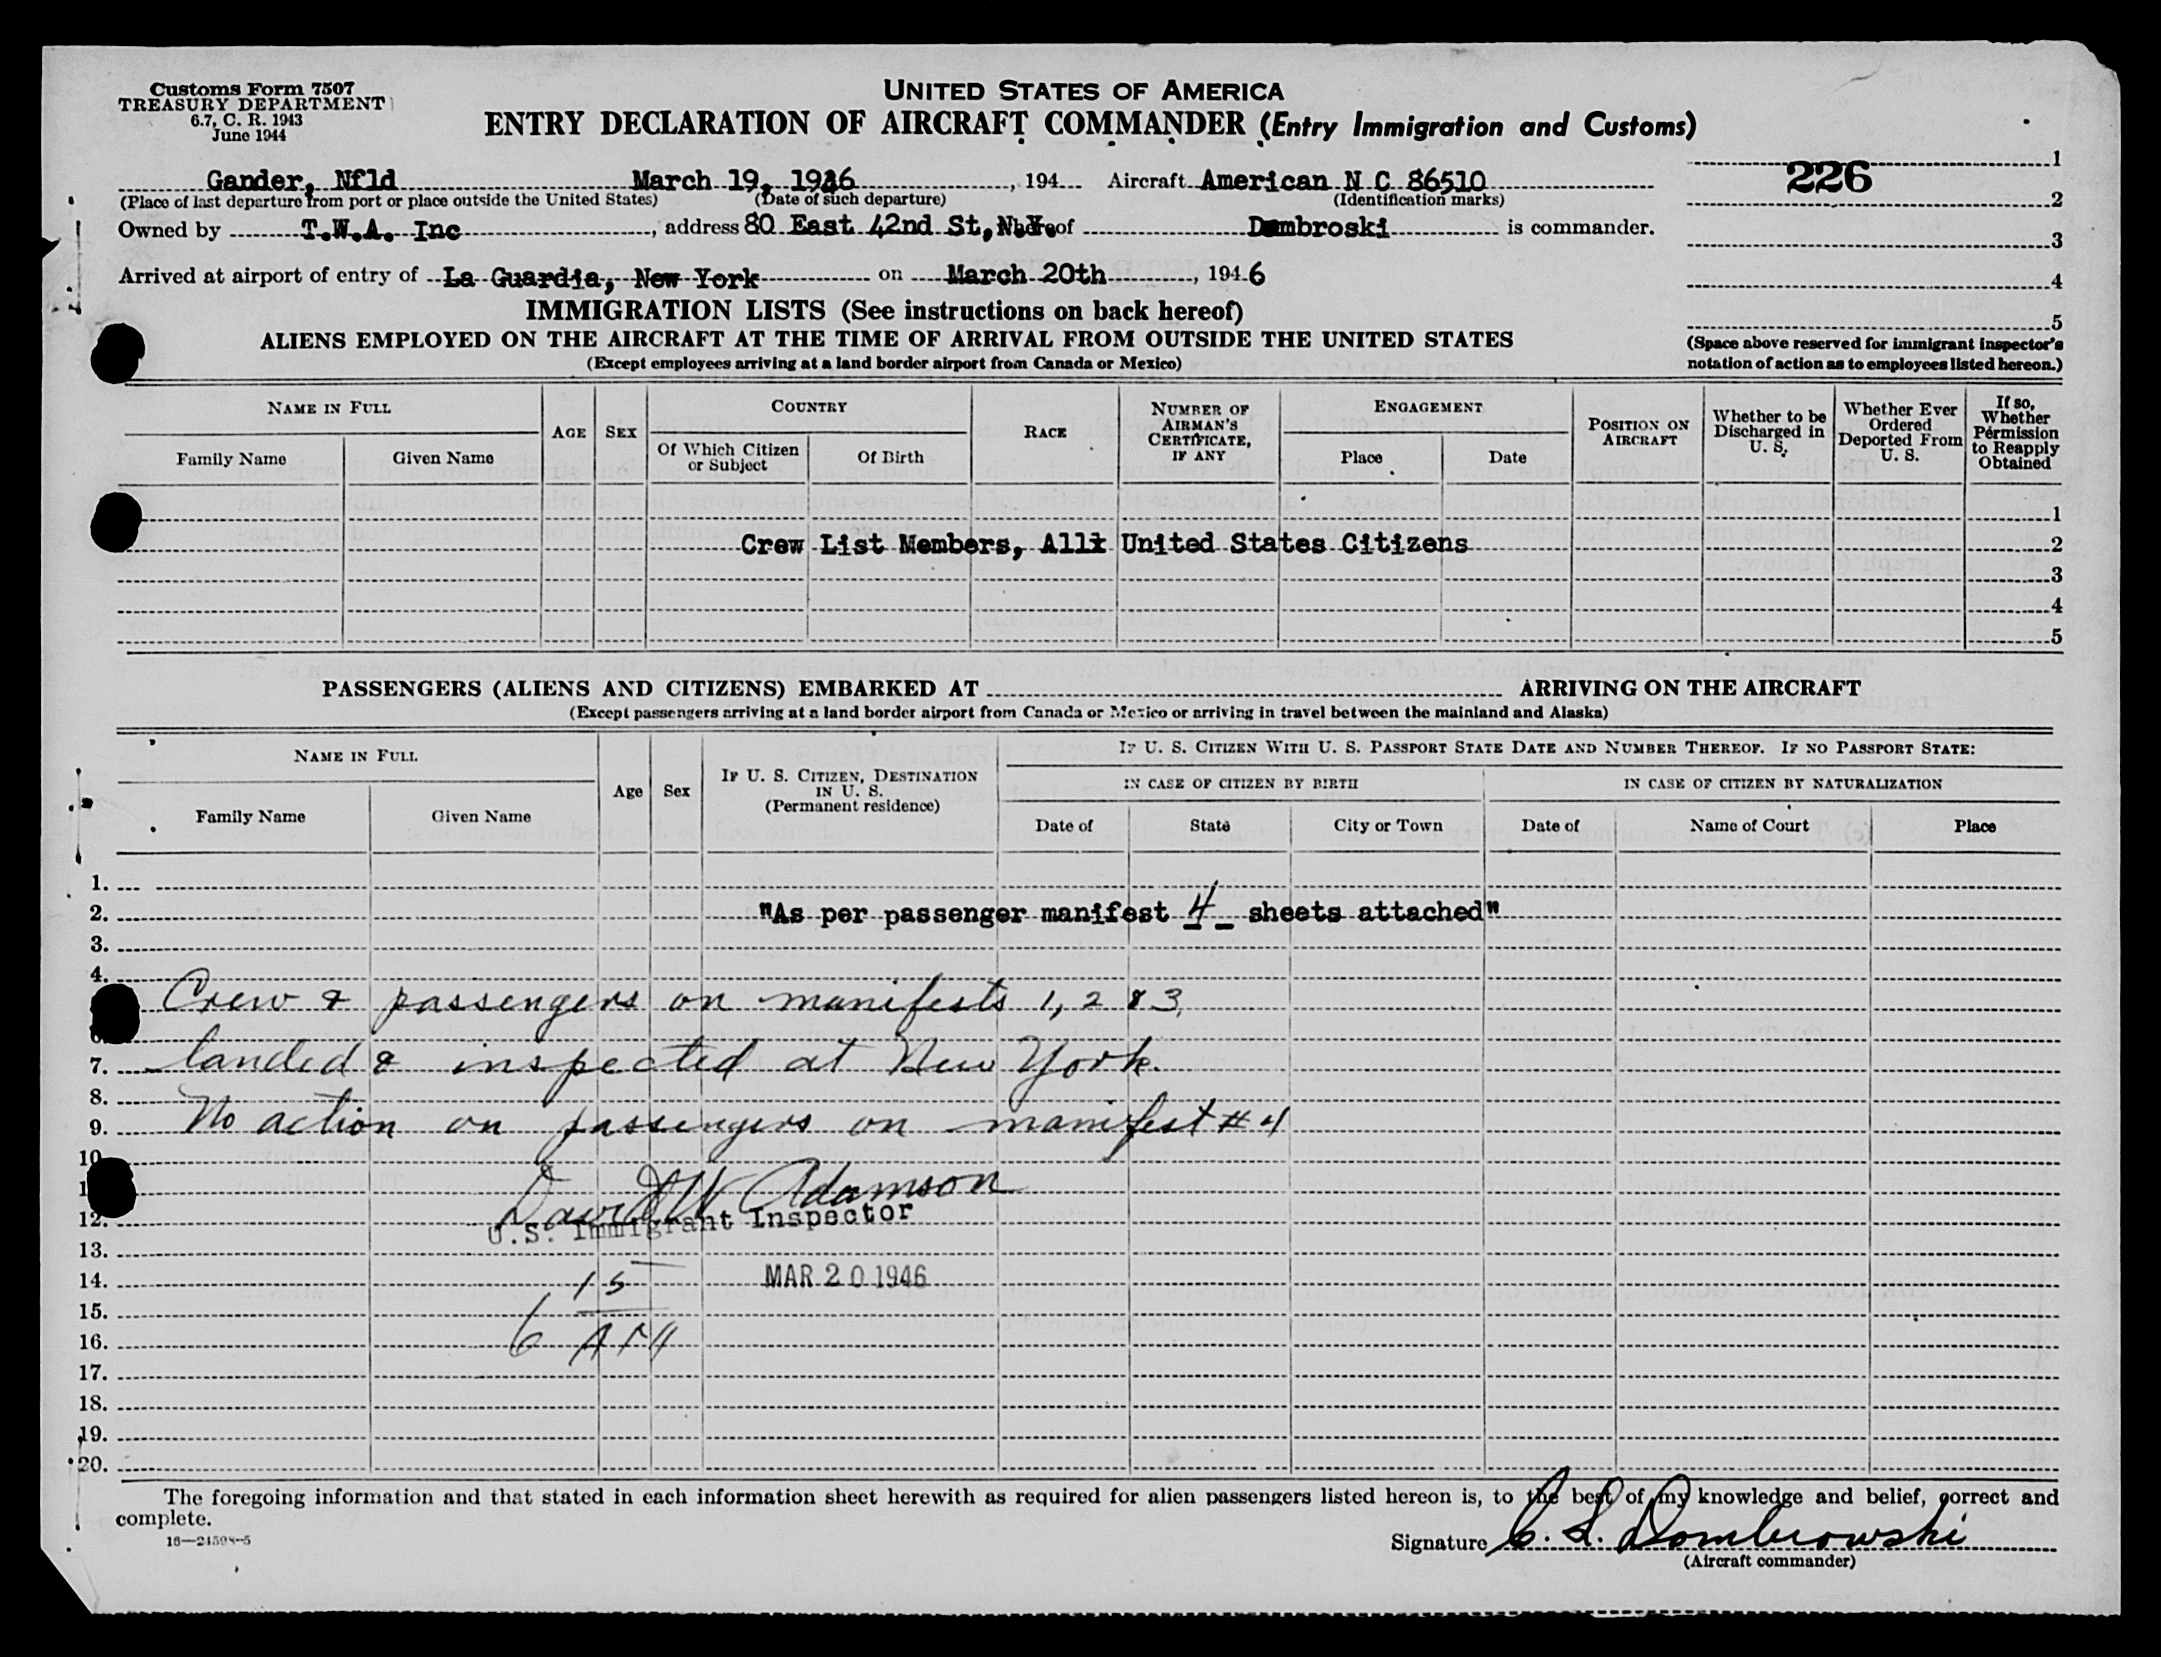 Customs Form 7507
TREASURY DEPARTMENT
6.7, C. R. 1943
June 1944
UNITED STATES OF AMERICA
ENTRY DECLARATION OF AIRCRAFT COMMANDER (Entry Immigration and Customs)
226
1
2
3
4
5
(Space above reserved for immigrant inspector's
notation of action as to employees listed hereon.)
Gander, Nfld March 19, 1946, 194 Aircraft American N C 86510
(Place of last departure from port or place outside the United States) (Date of such departure) (Identification marks)
Owned by T.W.A. Inc, address 80 East 42nd St, N.Y. whereof Dombroski is commander.
Arrived at airport of entry of La Guardia, New York on March 20th, 1946
IMMIGRATION LISTS (See instructions on back hereof)
ALIENS EMPLOYED ON THE AIRCRAFT AT THE TIME OF ARRIVAL FROM OUTSIDE THE UNITED STATES
(Except employees arriving at a land border airport from Canada or Mexico)
NAME IN FULL
Family Name Given Name
AGE SEX
COUNTRY
Of Which Citizen or Subject
Of Birth
RACE
NUMBER OF AIRMAN'S CERTIFICATE, IF ANY
ENGAGEMENT
Place Date
POSITION ON AIRCRAFT
Whether to be Discharged in U. S.
Whether Ever Ordered Deported From U. S.
If so, Whether Permission to Reapply Obtained
1
Crew List Members, All United States Citizens 2
3
4
5
PASSENGERS (ALIENS AND CITIZENS) EMBARKED AT ARRIVING ON THE AIRCRAFT
(Except passengers arriving at a land border airport from Canada or Mexico or arriving in travel between the mainland and Alaska)
NAME IN FULL
Family Name Given Name
Age Sex
IF U. S. CITIZEN, DESTINATION IN U. S.
(Permanent residence)
IF U. S. CITIZEN WITH U. S. PASSPORT STATE DATE AND NUMBER THEREOF. IF NO PASSPORT STATE:
IN CASE OF CITIZEN BY BIRTH IN CASE OF CITIZEN BY NATURALIZATION
Date of State City or Town Date of Name of Court Place
1.
2. "As per passenger manifest 4 sheets attached"
3.
4.
Crew & passengers on manifests 1, 2 & 3
7. landed & inspected at New York.
8.
9. No action on passengers on manifest # 4
10
David W Adamson
12. U.S. Immigrant Inspector
13.
14. 15 MAR 20 1946
15.
16. 6
17.
18.
19.
20.
The foregoing information and that stated in each information sheet herewith as required for alien passengers listed hereon is, to the best of my knowledge and belief, correct and
complete.
16—24598-5
Signature C. L. Dombrowski
(Aircraft commander)